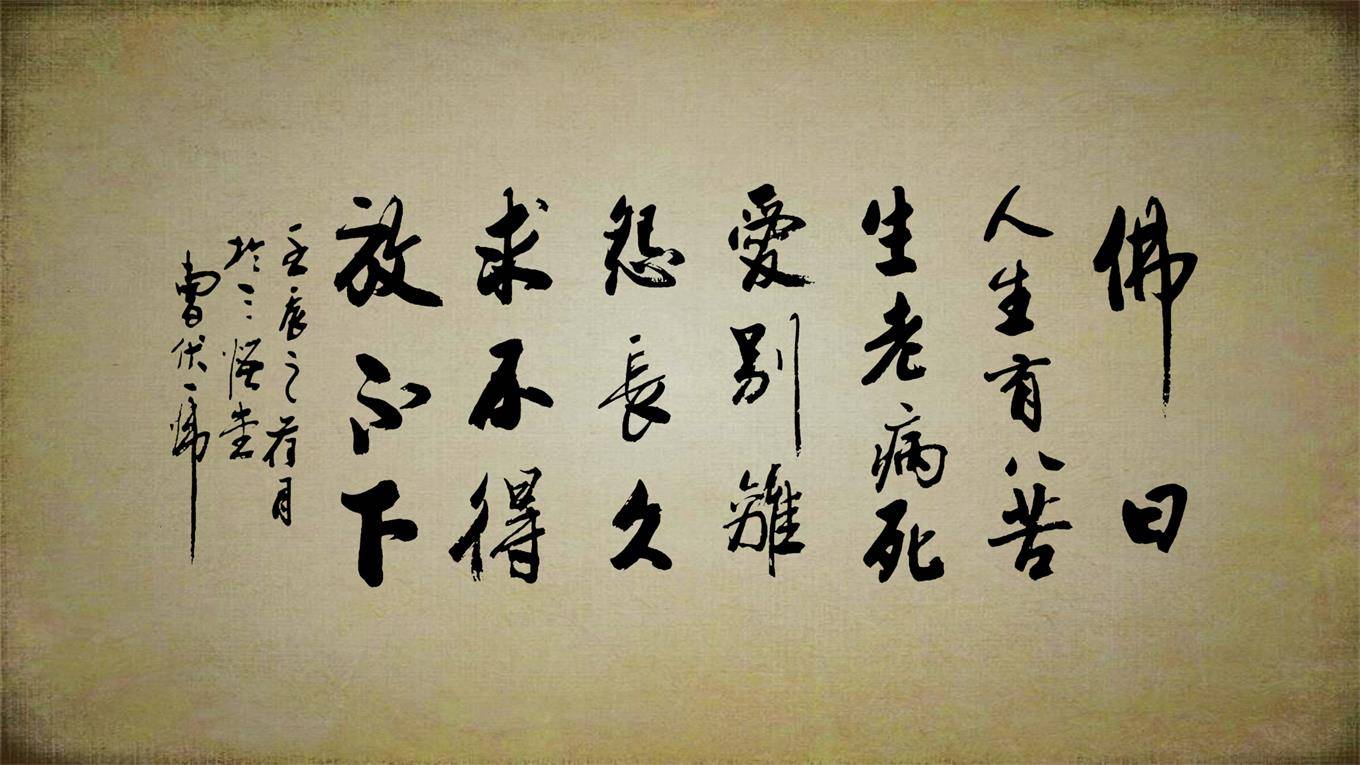 佛曰
人生有八苦
生老病死
愛别離
怨長久
求不得
放不下
壬辰之荷月
於三悟堂
曹伏